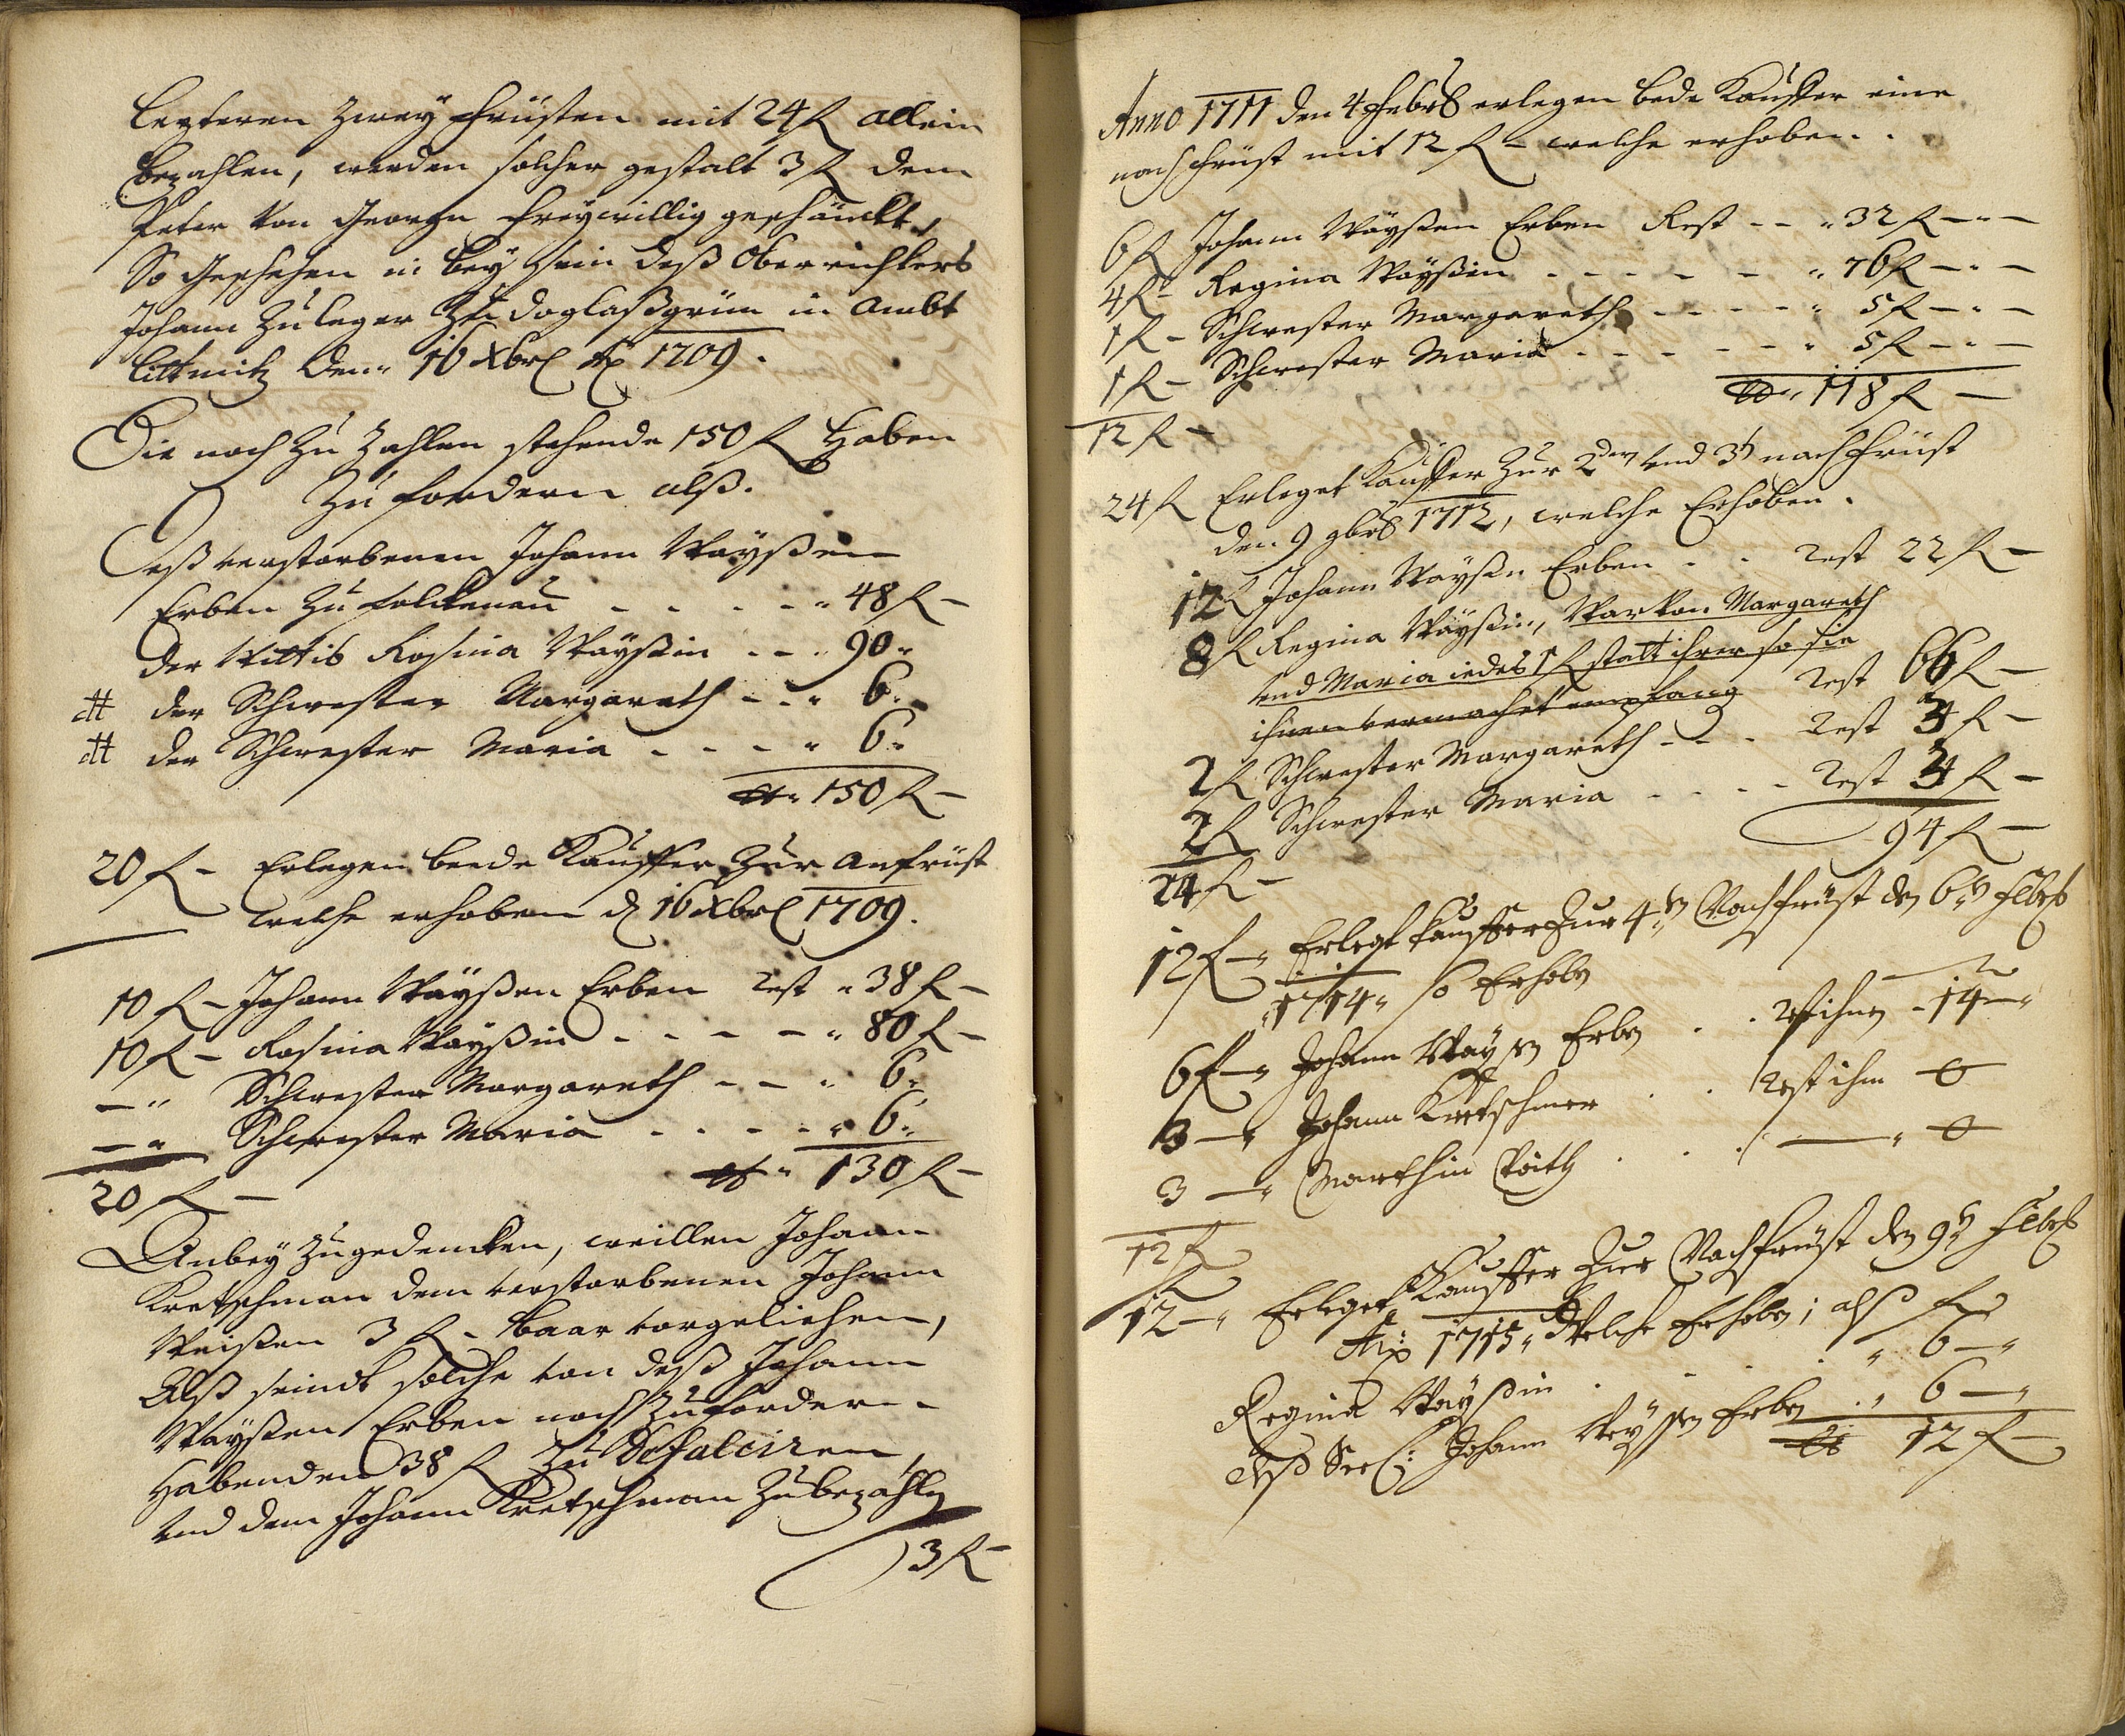 lezteren zweÿ früsten mit 24 fl allein
bezahlen, werden solcher gestalt 3 fl dem
Peter von Georgen freÿwillig geschänckt,
So geschehen in beÿ sein deß Oberrichters
Johann Zuleger Zu Doglaßgrün in Ambt
Littmitz den 16 Xbris Ao 1709.
Die noch Zu Zahlen stehende 150 fl haben
Zu fordern alß.
Deß verstorbenen Johann Waÿßen
Erben Zu Falckenau - - - - " 48 fl -
der Wittib Rosina Waÿßin - - " 90 "
dtt der Schwester Margareth - - " 6 "
dtt der Schwester Maria - - - - " 6 "
" 150 fl -
20 fl - Erlegen beede Kauffer Zur anfrüst
welche erhoben d 16 Xbris 1709.
10 fl - Johann Waÿßen Erben Rest " 38 fl -
10 fl - Rosina Waÿßin - - - - " 80 fl -
- " Schwester Margareth - - " 6 "
- " Schwester Maria - - - - " 6 "
20 fl - " 130 fl -
Anbeÿ Zugedencken, weillen Johann
Kretschman dem verstorbenen Johann
Weißen 3 fl - baar vorgeliehen,
Alß seindt solche von deß Johann
Waÿßen Erben noch Zufordern
habenden 38 fl Zu Defalciren
vnd dem Johann Kretschman Zubezahlen
3 fl -
Anno 1711 den 4 Febris erlegen bede Kauffer eine
nachfrüst mit 12 fl - welche erhoben.
6 fl Johann Waÿßen Erben Rest - - " 32 fl - " -
4 fl - Regina Waÿßin - - - - - " 76 fl - " -
1 fl - Schwester Margareth - - - - " 5 fl - " -
1 fl - Schwester Maria - - - - - " 5 fl - " -
" 118 fl -
12 fl -
24 fl Erleget Kauffer Zur 2ten vnd 3t nachfrüst
den 9 9bris 1712, welche Erhoben.
12 fl Johann Waÿßen Erben - - Rest 22 fl -
8 fl Regina Waÿßin, war von Margareth
vnd Maria iedes 1 fl statt ihrer so sie
ihnen vermachet empfang Rest 66 fl -
2 fl Schwester Margareth - - - Rest 3 fl -
2 fl Schwester Maria - - - - Rest 3 fl -
94 fl -
24 fl -
12 fl - " Erlegt Kauffer Zur 4ten Nachfrüst den 6ten Febris
1714 " so Erhoben
6 fl - " Johann Waÿßen Erben . . Rest ihnen - 14 - "
3 - " Johann Kretschmer . . Rest ihm 0
3 - " Marthin . . . - " 0
12 fl
12 - " Erleget Kauffer Zur Nachfrüst den 9ten Febris
Ao 1715 " Welche Erhoben; alß
Regina Waÿßin . . . " 6 - "
deß Seel: Johann Weÿßen Erben . " 6 - "
12 fl -